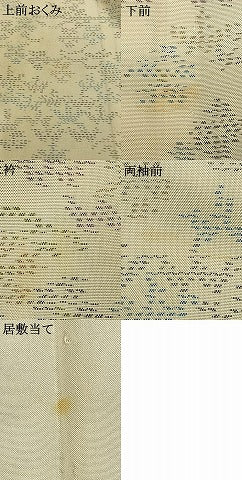 上前おくみ
下前
衿
両袖前
居敷当て